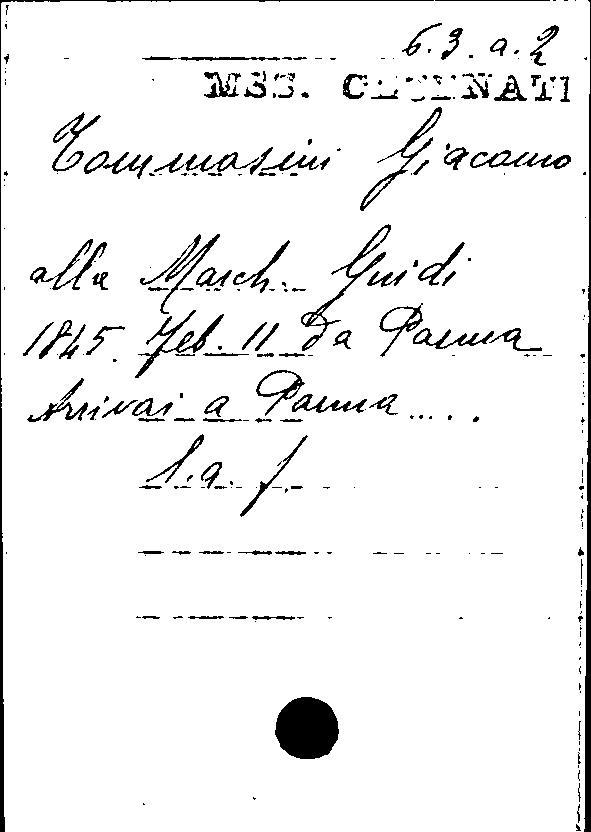 6.3.a.2
MSS. CETTNATI
Tommasini Giacomo
alla March. Guidi
1845. Feb. 11 da Parma
Arrivai a Parma.....
l.a.f.